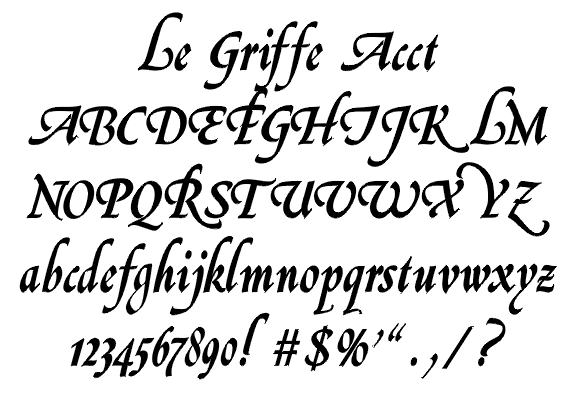 Le Griffe Acct
ABCDEFGHIJK LM
NOPQRSTUVWXYZ
abcdefghijklmnopqrstuvwxyz
1234567890! #$%'“.,/?